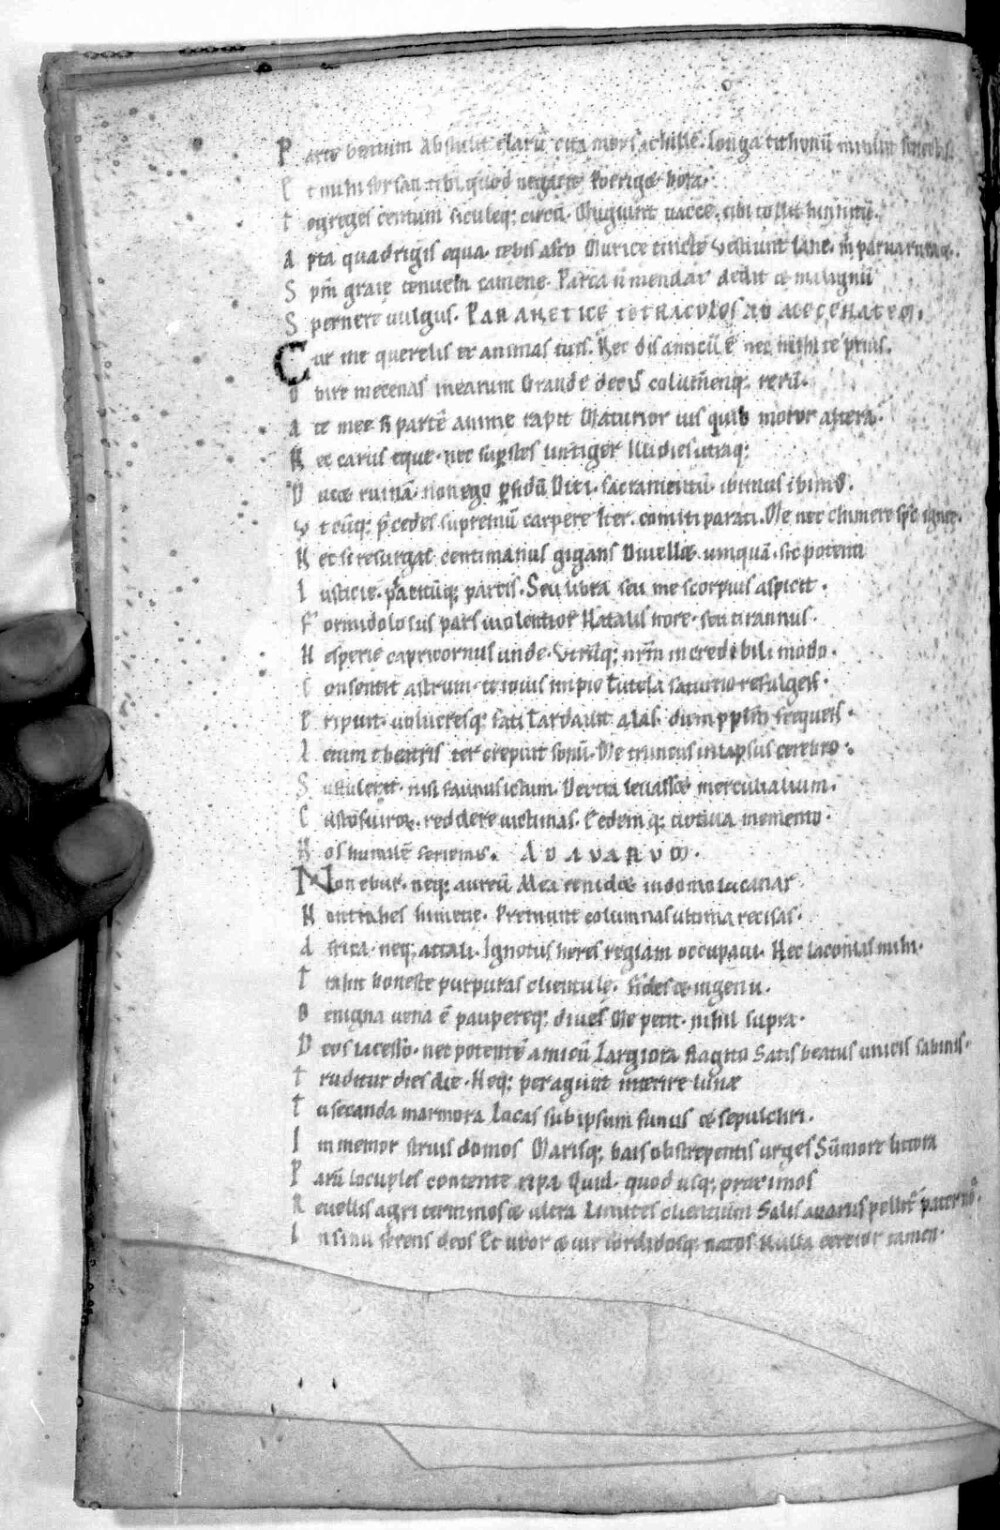 Parte beatum Abstulit clarū cita mors achillē. longa tithonū minuit senectus.
Et mihi forsan tibi quod negarit Porriget hora.
Te greges centum siculeq; circū. Mugiunt vacce. tibi tollit hinnitū.
Apta quadrigis equa. te bis afro Murice tincte Vestiunt lane. m̄ parva rura &.
Spm̄ graie tenuem camene. Parca n̄ mendax dedit & malignū
Spernere vulgus. PARANETICE TETRACOLOS AD MECENATEM.
Cur me querelis exanimas tuis. Nec dis amicū ē nec mihi te prius.
Obire mecenas mearum Grande decus columenq; rerū.
A te mee si partē anime rapit Maturior vis quid moror altera.
Nec carus eque. nec superstes Integer Ille dies utraq;
Ducet ruinā. non ego perfidū Dixi. sacramentū. ibimus ibimus.
Vt cūq; p̄cedes supremū carpere Iter. comiti parati. Me nec chimere sp̄s ignee.
Nec si resurgat centimanus gigans Divellet umquā. sic potenti
Iusticie. placitūq; parcis. Seu libra seu me scorpius aspicit.
Formidolosus pars violentior Natalis hore. seu tirannus.
Hesperie capricornus unde. Vtrūq; nrm̄ incredibili modo.
Consentit astrum. te iovis impio Tutela saturno refulgens.
Eripuit. volucresq; fati Tardavit alas. dum pplm̄ frequens.
Letum theatris ter crepuit sonū. Me truncus inlapsus cerebro.
Sustulerat. nisi faunus ictum. Dextra levasset mercurialium.
Custos viror. reddere victimas. Edemq; votiva memento.
Nos humilē feriemus. AD AVARUM.
Non ebur. neq; aureū Mea renidet in domo lacunar
Non trabes himetie. Premunt columnas ultima recisas.
Africa. neq; attali. Ignotus heres regiam occupavi. Nec laconicas mihi.
Trahunt honeste purpuras cliente. fides & ingeni.
Benigna vena ē pauperēq; dives Me petit. nihil supra.
Deos lacesso. nec potentē amicū Largiora flagito Satis beatus unicis sabinis.
Truditur dies die. Neq; peragunt interire lune
Tu secanda marmora Locas sub ipsum funus & sepulchri.
Inmemor struis domos Marisq; bais obstrepentis urges Sūmore littora
Parū locuples contente ripa Quid. quod usq; proximos
Revellis agri terminos & ultra Limites clientium Salis avarus pellit paternos.
In sinu ferens deos Et uxor & vir sordidosq; natos Nulla certior tamen.